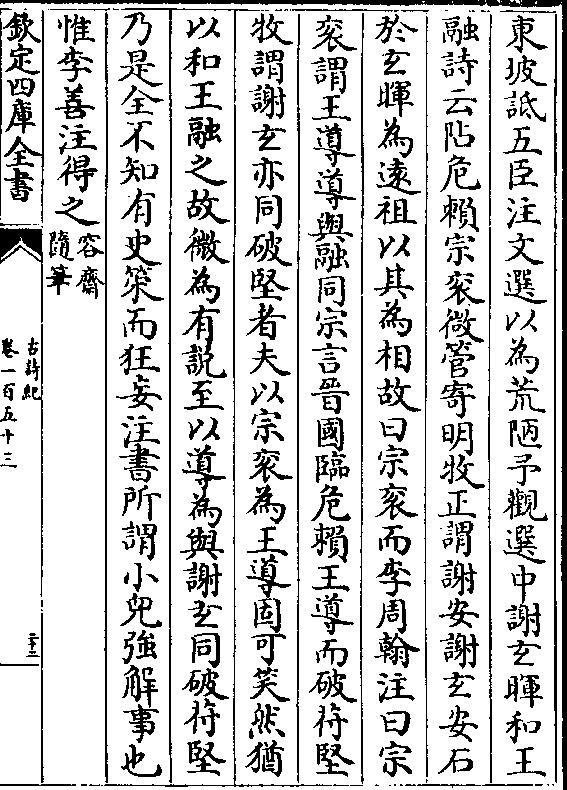 東坡詆五臣注文選以為荒陋予觀選中謝玄暉和王
融詩云阽危賴宗衮微管寄明牧正謂謝安謝玄安石
於玄暉為遠祖以其為相故曰宗衮而李周翰注曰宗
衮謂王導導與融同宗言晉國臨危賴王導而破苻堅
牧謂謝玄亦同破堅者夫以宗衮為王導固可笑然猶
以和王融之故微為有說至以導為與謝玄同破苻堅
乃是全不知有史策而狂妄注書所謂小兒強解事也
惟李善注得之
容齋
隨筆
欽定四庫全書
古詩紀
卷一百五十三
二十三